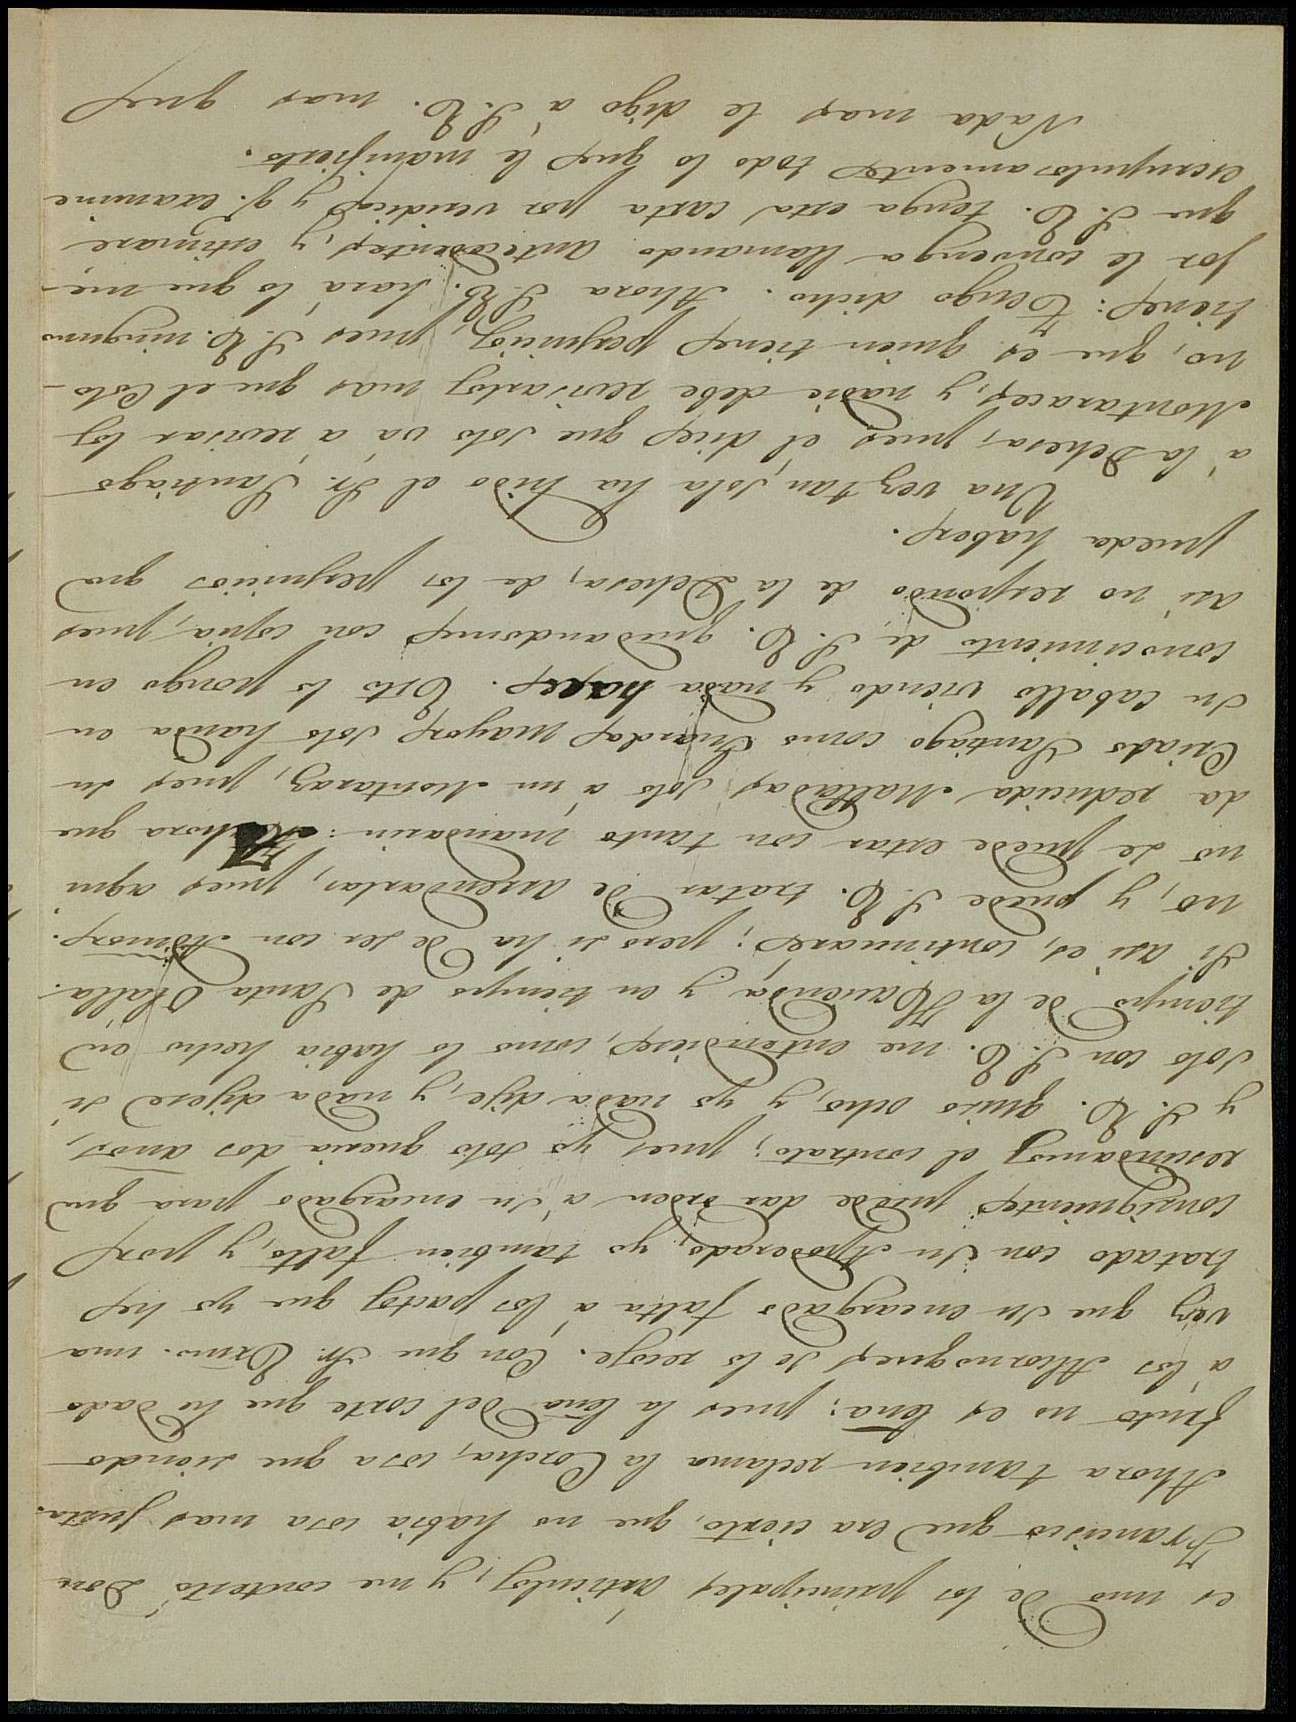 es uno de los principales articulos, y me contestó Don
Francisco que era cierto, que no habia cosa mas justa.
Ahora tambien reclama la Corcha, cosa que siendo
fruto no es leña; pues la leña del corte que he dado
á los Alcornoques se lo recoje. Con que Sr. Exmo. una
vez que su encargado falta á los pactos que yo he
tratado con su Apoderado, yo tambien falto, y por
consiguiente puede dar orden a su encargado para que
rescindamos el contrato; pues yo solo queria dos años,
y S. E. quiso ocho, y yo nada dije, y nada dijere si
solo con S. E. me entendiese, como lo habia hecho en
tiempo de la Hacienda y en tiempo de Santa Olalla.
Si asi es, continuare; pero si ha de ser con Admor.
no, y puede S. E. tratar de arrendarlas, pues aqui
no se puede estar con tanto mandarin: Ahora que
da reducida Malladas solo á un Montaraz, pues su
Criado Santiago como Guarda mayor solo handa en
su caballo viendo y nada hace. Esto lo pongo en
conocimiento de S. E. quedandome con copia, pues
asi no respondo de la Dehesa, de los perjuicios que
pueda haber.
Una vez tan sola ha hido el Sr. Santiago
á la Dehesa, pues el dice que solo vá á revisar los
Montaraces, y nadie debe revisarlos mas que el Colo-
no, que es quien tiene perjuicios, pues S. E. ninguno
tiene: Tengo dicho. Ahora S. E. hará lo que me-
jor le convenga llamando antecedentes, y estimare
que S. E. tenga esta carta por veridica y q.e examine
escrupulosamente todo lo que le manifiesto.
Nada mas le digo á S. E. mas que